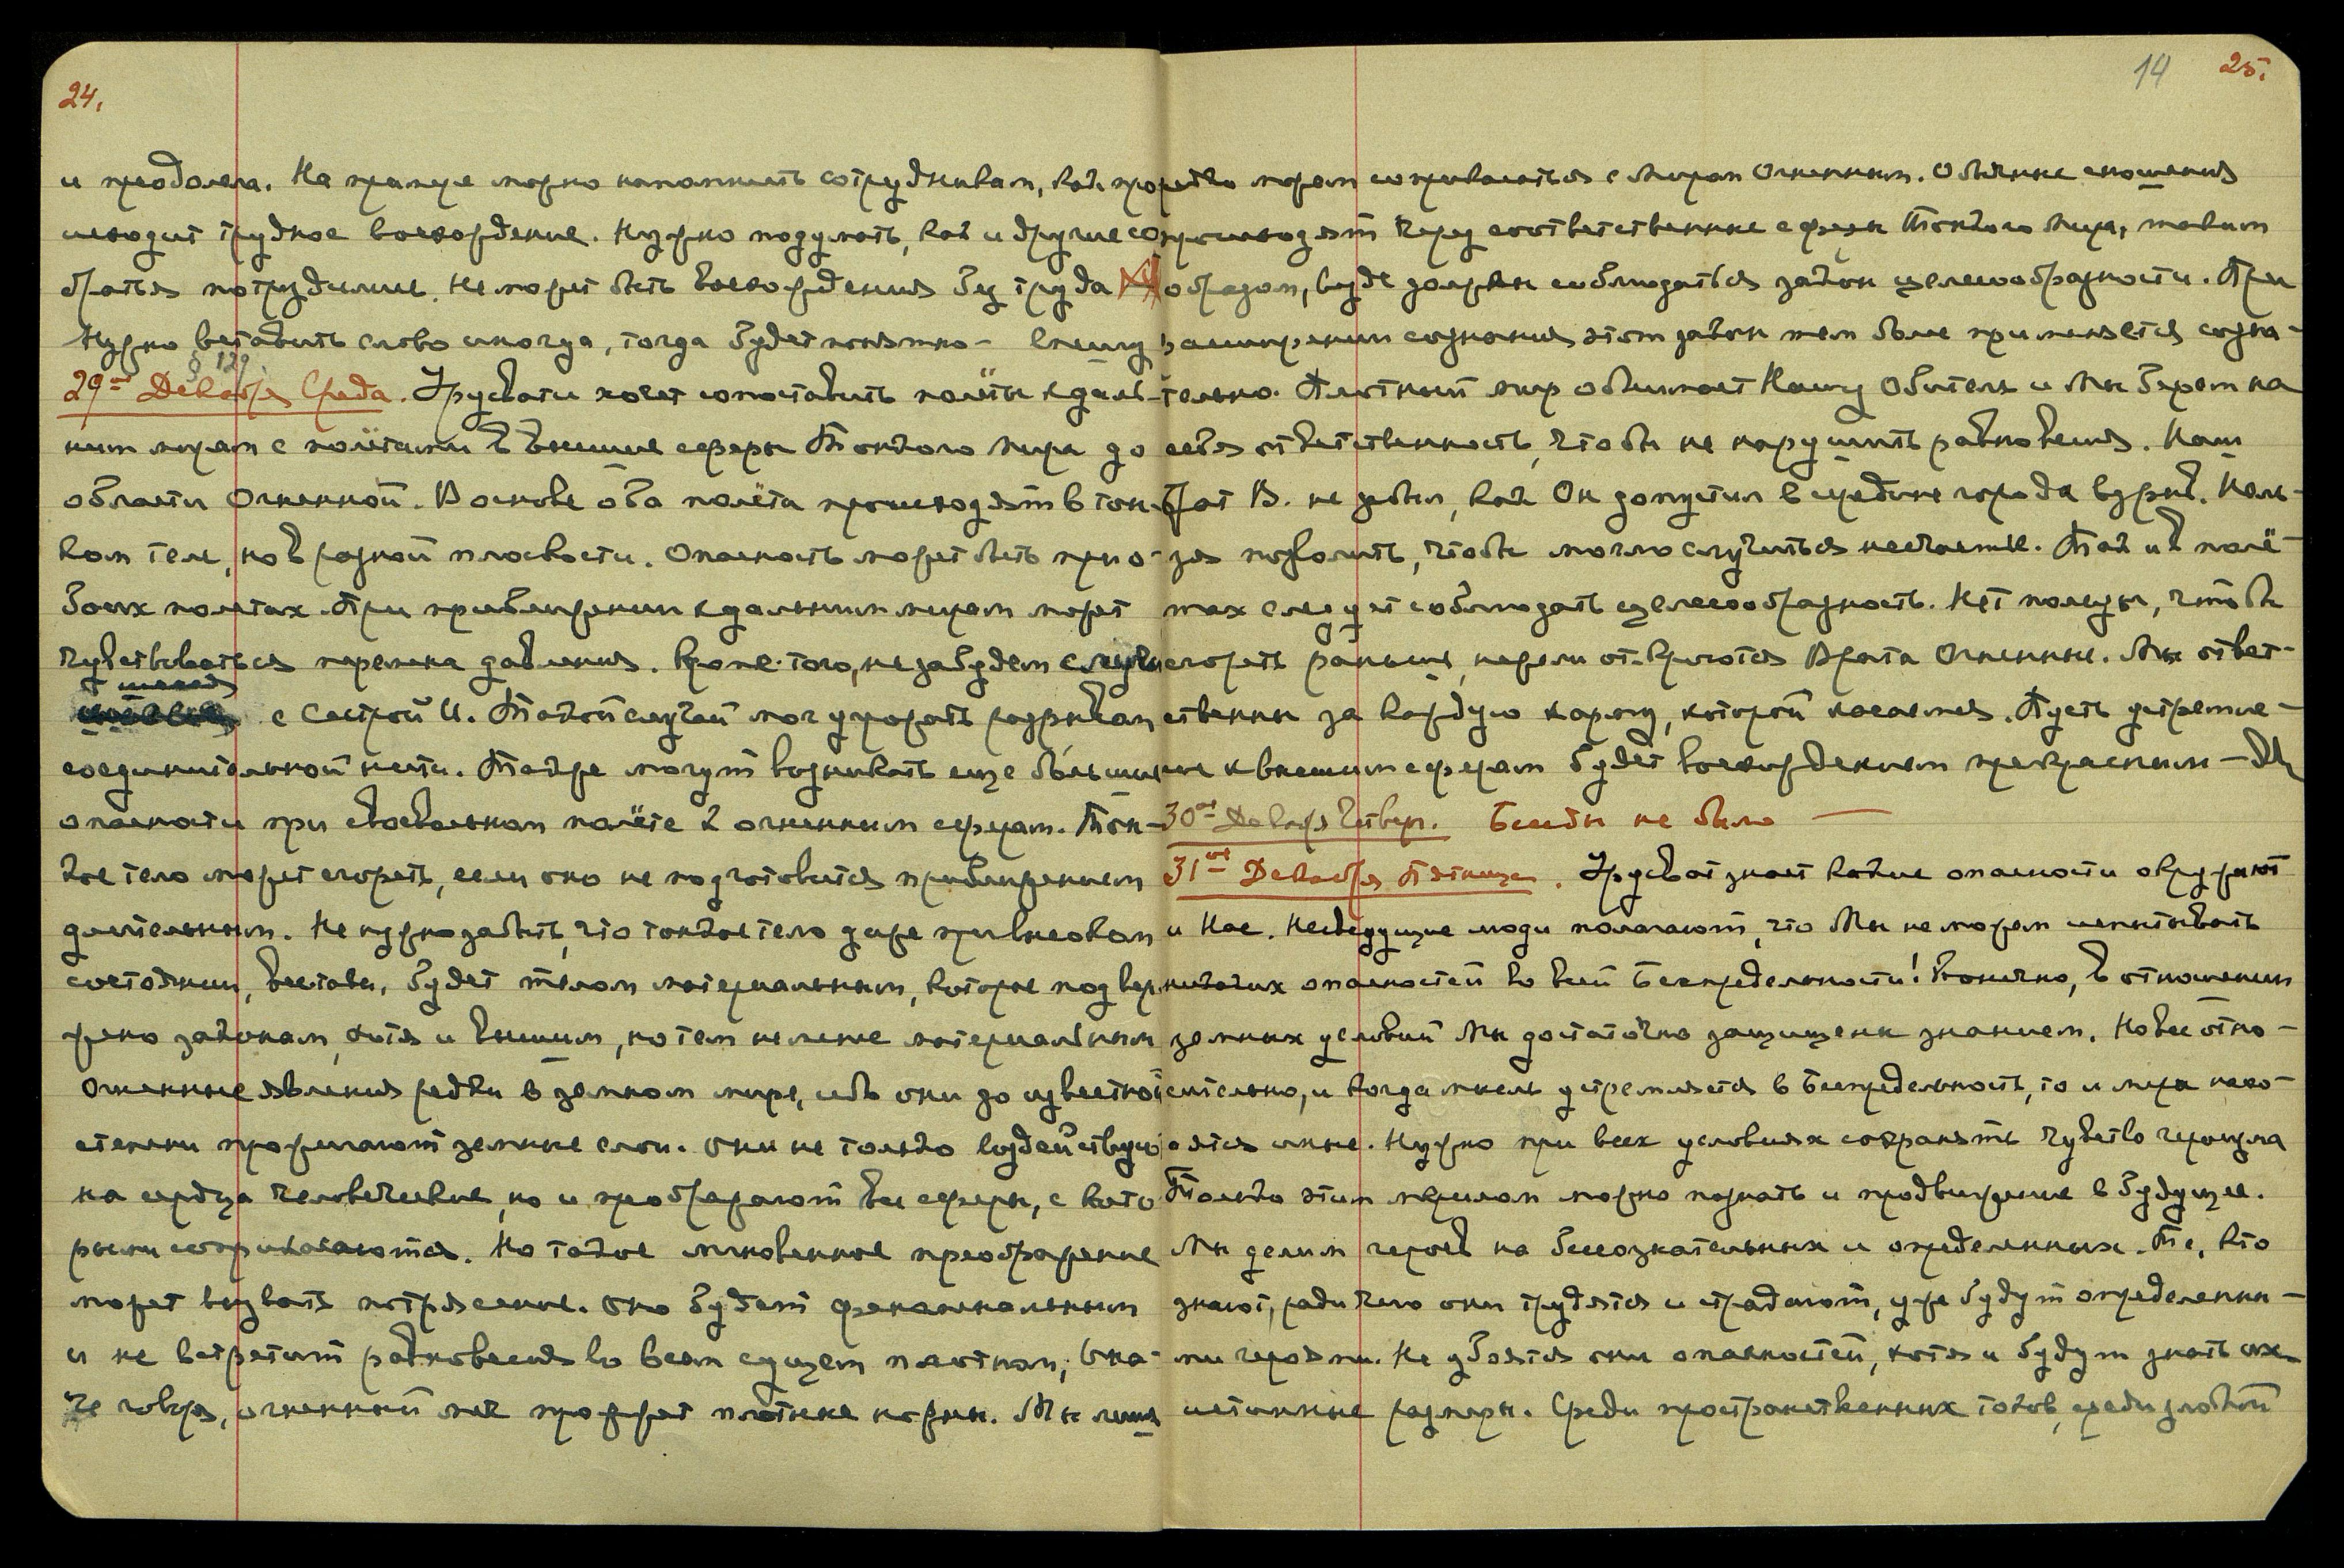 24.
и преодолела. На примере можно напомнить сотрудникам, как про-
исходит трудное восхождение. Нужно подумать, как и другие со-
братья потрудились. Не может быть восхождения без труда
Нужно вставить слово иногда, тогда будет понятно —
§ 129
29ое Декабря Среда. Урусвати хочет сопоставить полёты к даль-
ним мирам с полётами в высшие сферы Тонкого Мира до
области Огненной. В основе оба полёта происходят в тон-
ком теле, но в разной плоскости. Опасность может быть при о-
боих полетах. При приближении к дальним мирам может
чувствоваться перемена давления. Кроме того, не забудем случ
с Сестрой И. Такой случай мог угрожать разрывом
соединительной нити. Также могут возникать еще большие
опасности при своевольном полёте к огненным сферам. Тон-
кое тело может сгореть, если оно не подготовится приближением
длительным. Не нужно забыть, что тонкое тело даже при высоком
состоянии, всетаки, будет телом материальным, которое подвер-
жено законам, хотя и высшим, но тем не менее материальным
Огненные явления редки в земном мире, ибо они до известной
степени прожигают земные слои. Они не только воздействую
на сердца человеческие, но и преображают все сферы, с кото
рыми соприкасаются. Но такое мгновенное преображение
может вызвать потрясение. Оно будет феноменальным
и не встретит равновесия во всем сущем плотном; Ина-
че говоря, огненный меч прожжет плотные ножны. Мы лишь
14 25.
редко можем соприкасаться с Миром Огненным. Обычные сношения
происходят через соответственные сферы Тонкого Мира, таким
образом, везде должен соблюдаться закон целесообразности. При
высшем расширении сознания этот закон тем более применяется созна-
тельно. Плотный мир обнимает Нашу Обитель и Мы берем на
себя ответственность, чтобы не нарушить равновесия. Наш
Брат В. не забыл, как Он допустил в средине города взрыв. Нель-
зя позволить, чтобы могло случиться несчастье. Так и в полё-
тах следует соблюдать целесообразность. Нет пользы, чтобы
сгореть раньше, нежели откроются Врата Огненные. Мы ответ-
ственны за каждую карму, которой касаемся. Пусть устремле-
ние к высшим сферам будет восхождением прекрасным —
30ое Декабря Четверг. Беседы не было —
31ое Декабря Пятница. Урусвати знает какие опасности окружают
и Нас. Несведущие люди полагают, что Мы не можем испытывать
никаких опасностей во всей Беспредельности! Конечно, в отношении
земных условий Мы достаточно защищены знанием. Но все отно-
сительно, и когда мысль устремляется в Беспредельность, то и меры нахо-
дятся иные. Нужно при всех условиях сохранять чувство героизма
Только этим мерилом можно познать и продвижение в будущее.
Мы делим героев на бессознательных и определенных. Те, кто
знают, ради чего они трудятся и страдают, уже будут определенны-
ми героями. Не убоятся они опасностей, хотя и будут знать их
истинные размеры. Среди пространственных токов, среди злобной